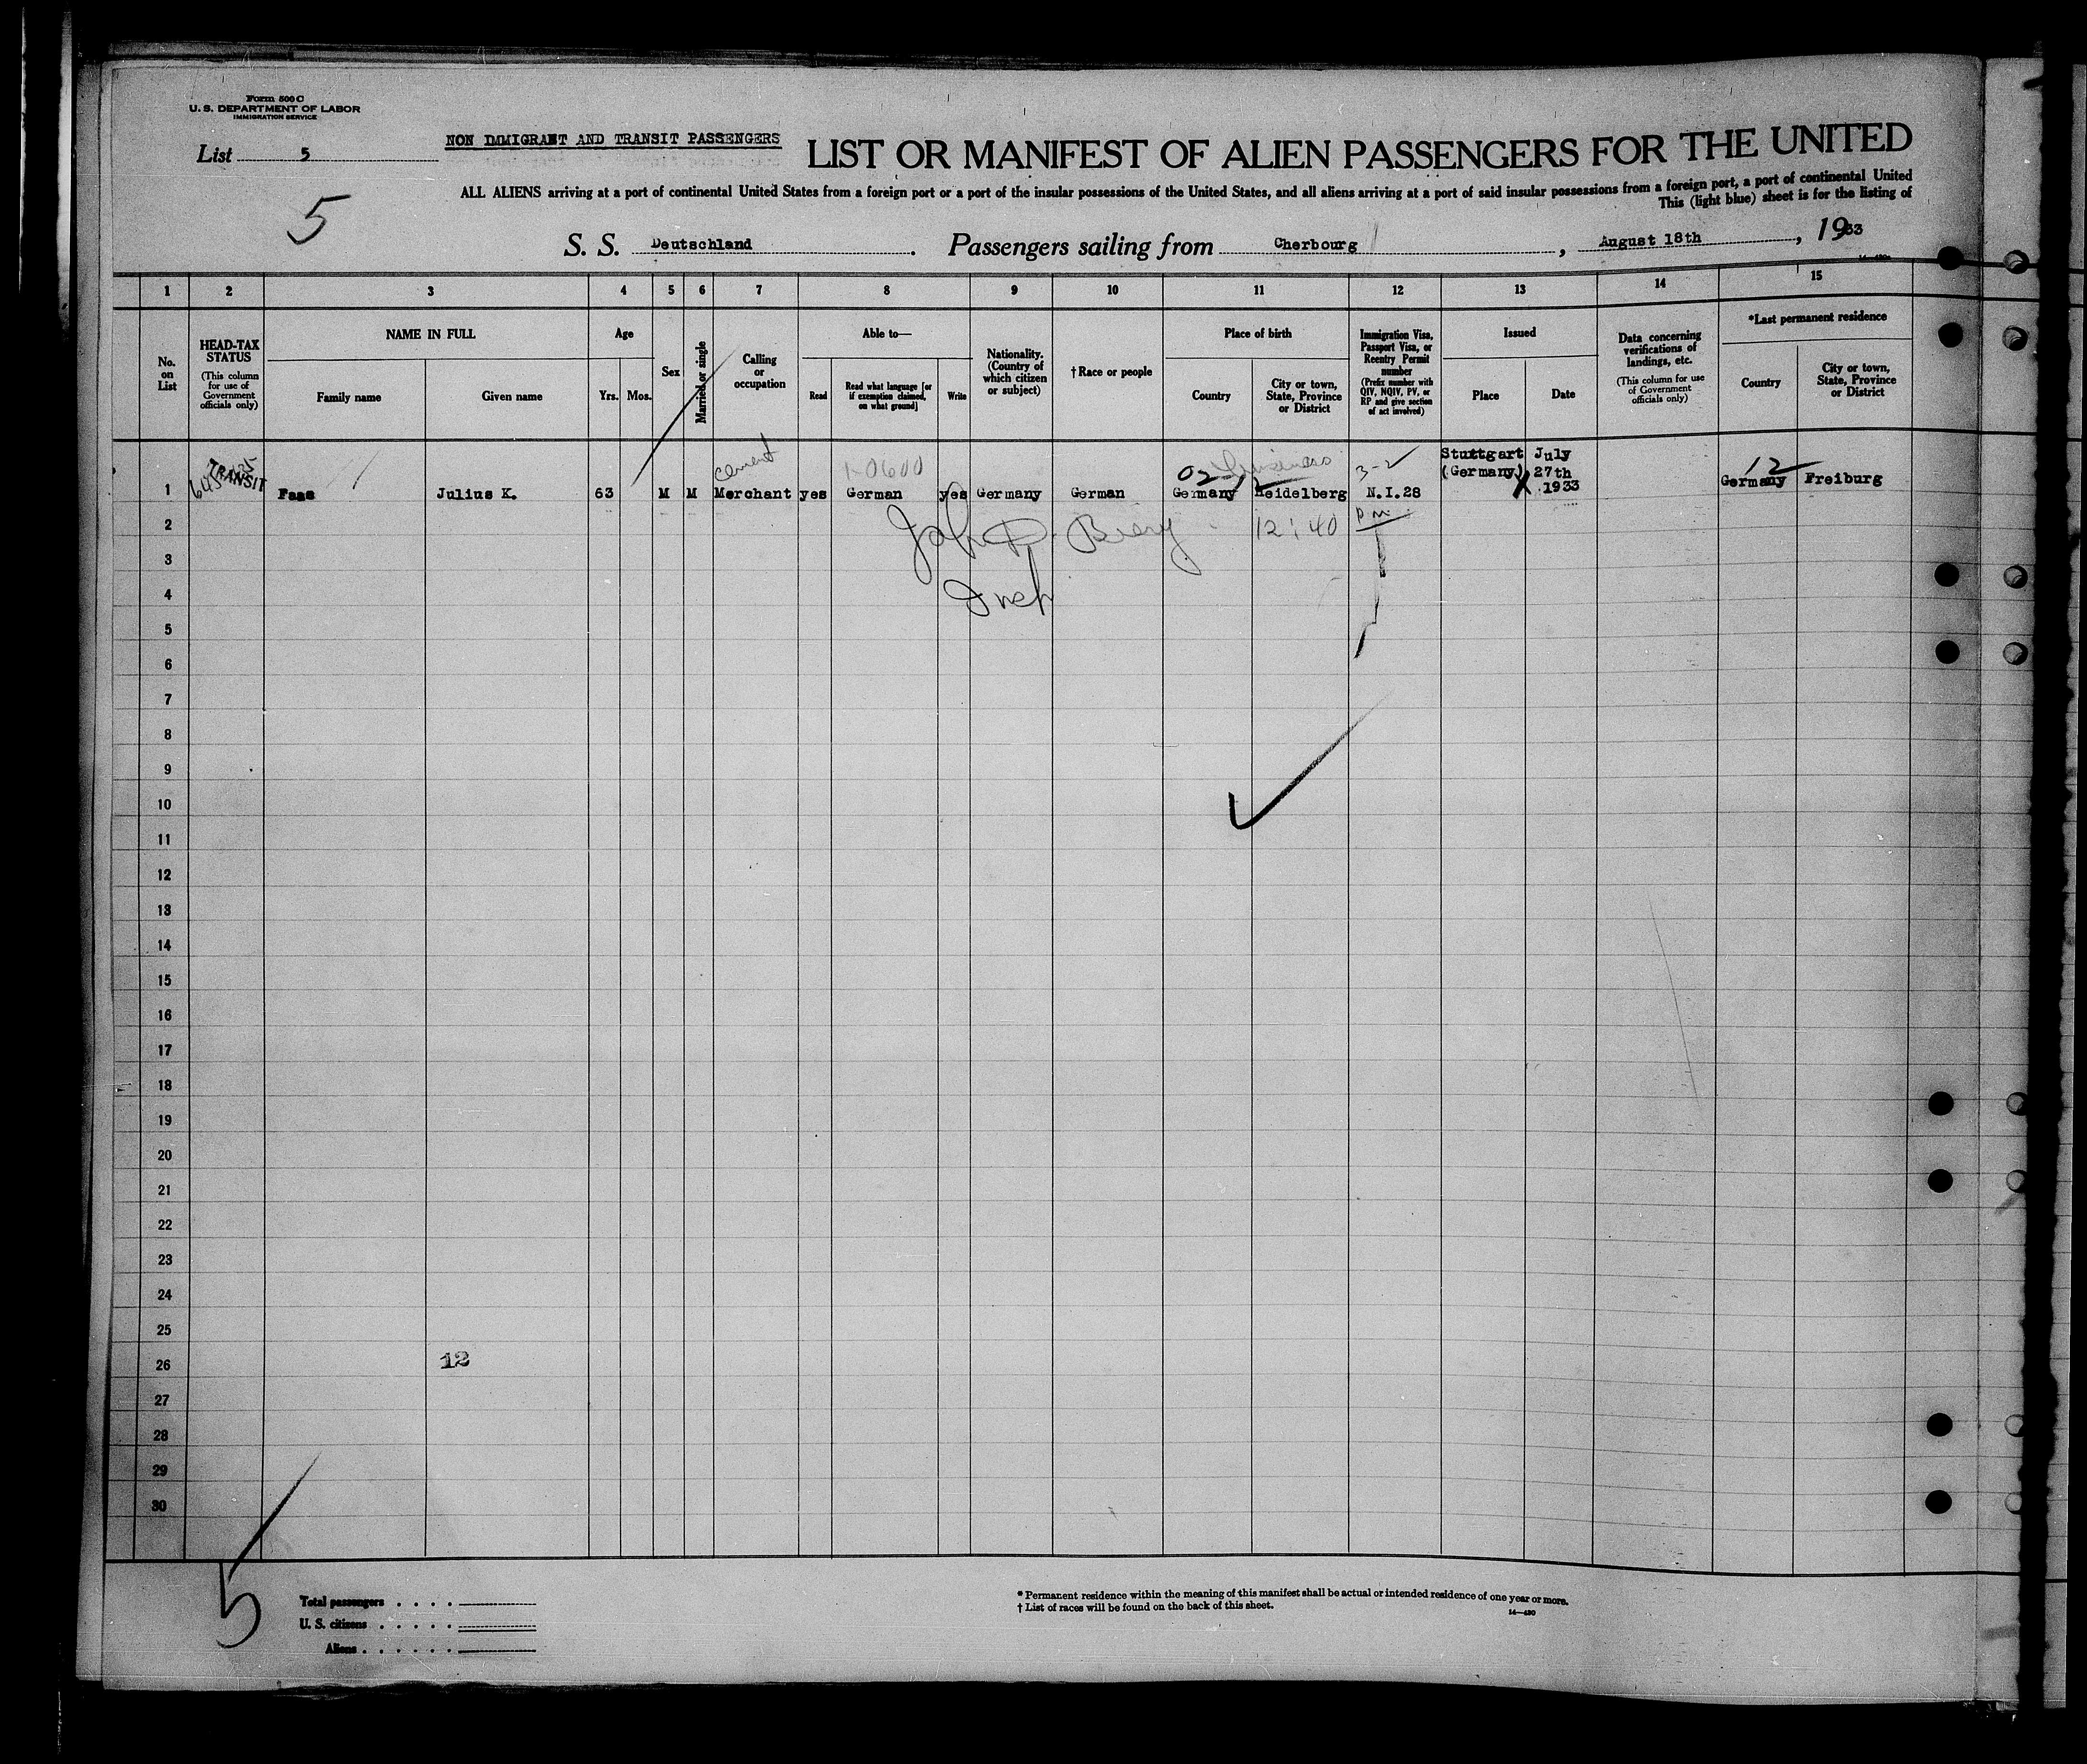 Form 500 C
U. S. DEPARTMENT OF LABOR
IMMIGRATION SERVICE
List 5
NON IMMIGRANT AND TRANSIT PASSENGERS
LIST OR MANIFEST OF ALIEN PASSENGERS FOR THE UNITED
5
ALL ALIENS arriving at a port of continental United States from a foreign port or a port of the insular possessions of the United States, and all aliens arriving at a port of said insular possessions from a foreign port, a port of continental United
This (light blue) sheet is for the listing of
S. S. Deutschland. Passengers sailing from Cherbourg, August 18th, 1933
1 2 3 4 5 6 7 8 9 10 11 12 13 14 15
No. on List
HEAD-TAX STATUS
(This column for use of Government officials only)
NAME IN FULL
Family name
Given name
Age
Yrs.
Mos.
Sex
Married or single
Calling or occupation
Able to—
Read
Read what language [or if exemption claimed, on what ground]
Write
Nationality. (Country of which citizen or subject)
† Race or people
Place of birth
Country
City or town, State, Province or District
Immigration Visa, Passport Visa, or Reentry Permit number
(Prefix number with QIV, NQIV, PV, or RP and give section of act involved)
Issued
Place
Date
Data concerning verifications of landings, etc.
(This column for use of Government officials only)
*Last permanent residence
Country
City or town, State, Province or District
TRANSIT
cement
02
3-2
12
1 Faas Julius K. 63 M M Merchant yes German yes Germany German Germany Heidelberg N.I.28 Stuttgart (Germany) July 27th 1933 Germany Freiburg
2
John 12:40 PM
3
4
Insp
5
6
7
8
9
10
11
12
13
14
15
16
17
18
19
20
21
22
23
24
25
26 12
27
28
29
30
5
Total passengers
U. S. citizens
Aliens
* Permanent residence within the meaning of this manifest shall be actual or intended residence of one year or more.
† List of races will be found on the back of this sheet.
14—430